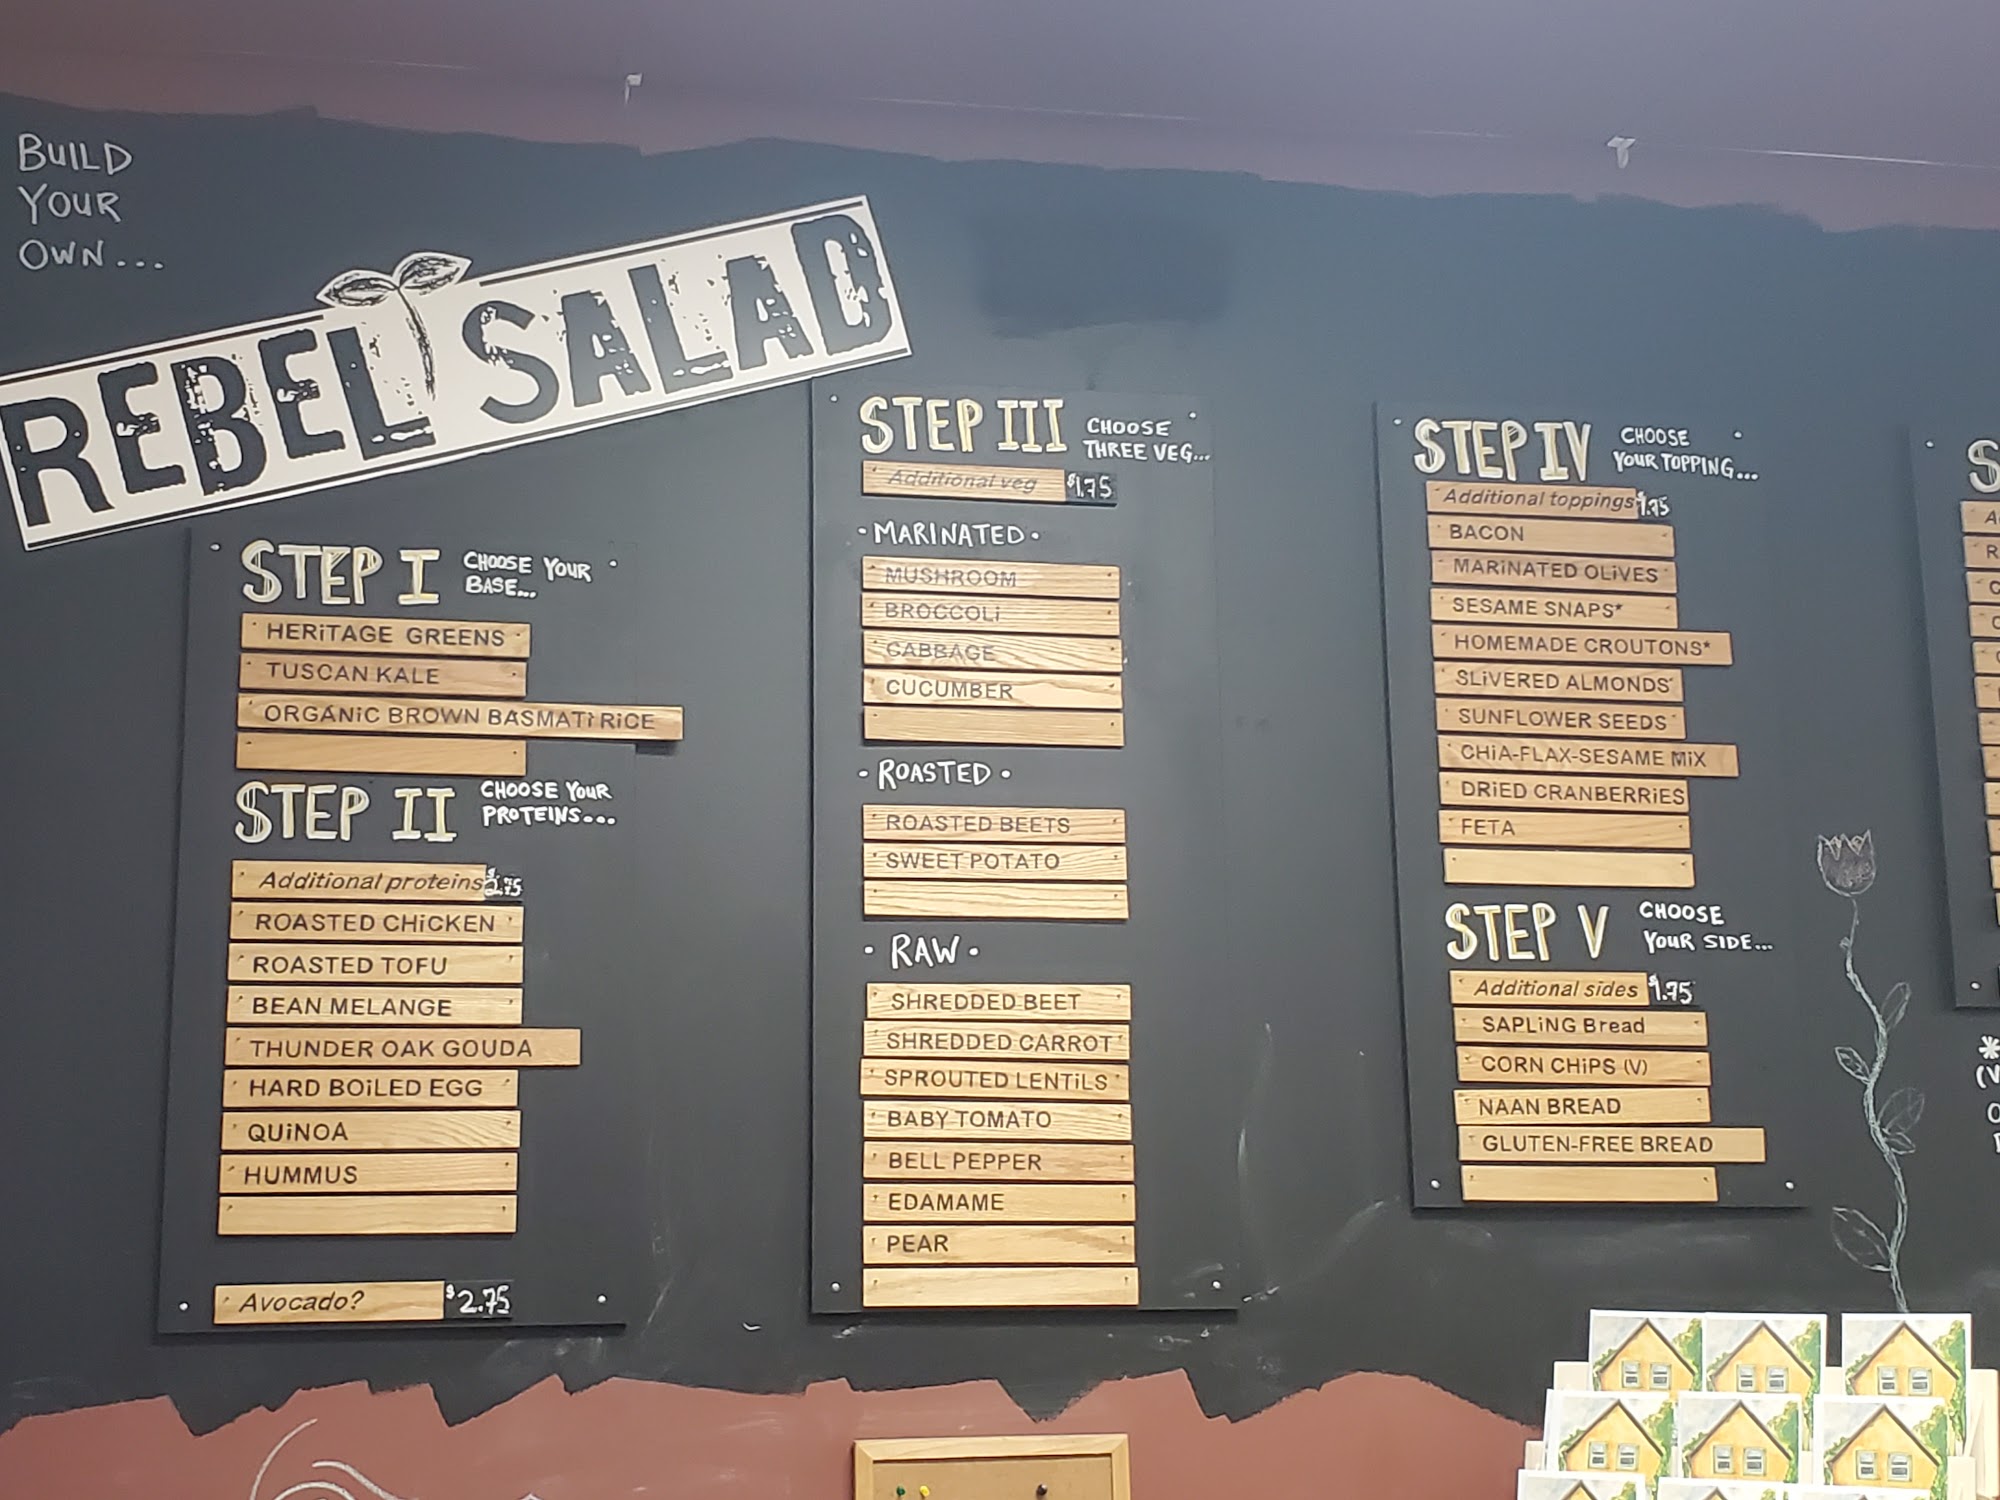 BUILD
YOUR
OWN...
REBEL SALAD
STEP I CHOOSE YOUR
BASE...
HERiTAGE GREENS
TUSCAN KALE
ORGANiC BROWN BASMATi RiCE
STEP II CHOOSE YOUR
PROTEINS...
Additional proteins $2.75
ROASTED CHiCKEN
ROASTED TOFU
BEAN MELANGE
THUNDER OAK GOUDA
HARD BOiLED EGG
QUiNOA
HUMMUS
Avocado? $2.75
STEP III CHOOSE
THREE VEG...
Additional veg $1.75
• MARINATED •
MUSHROOM
BROCCOLi
CABBAGE
CUCUMBER
• ROASTED •
ROASTED BEETS
SWEET POTATO
• RAW •
SHREDDED BEET
SHREDDED CARROT
SPROUTED LENTiLS
BABY TOMATO
BELL PEPPER
EDAMAME
PEAR
STEP IV CHOOSE
YOUR TOPPING...
Additional toppings $1.75
BACON
MARiNATED OLiVES
SESAME SNAPS*
HOMEMADE CROUTONS*
SLiVERED ALMONDS
SUNFLOWER SEEDS
CHiA-FLAX-SESAME MiX
DRiED CRANBERRiES
FETA
STEP V CHOOSE
YOUR SIDE...
Additional sides $1.75
SAPLiNG Bread
CORN CHiPS (V)
NAAN BREAD
GLUTEN-FREE BREAD